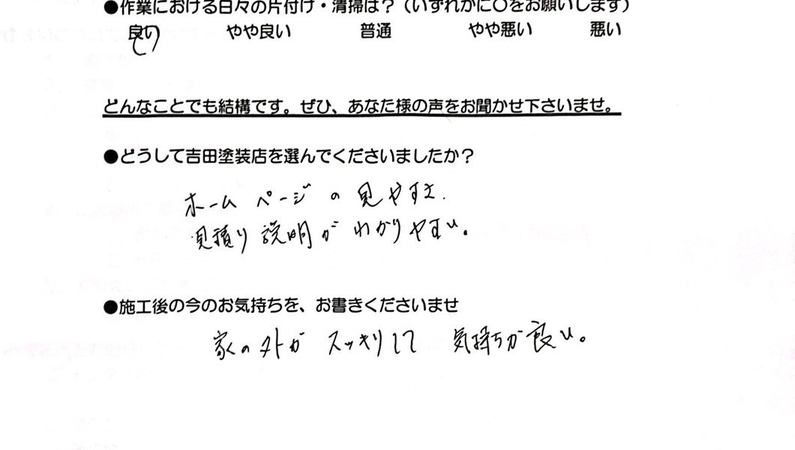 ●作業における日々の片付け・清掃は？（いずれかに〇をお願いします）
良い　やや良い　普通　やや悪い　悪い
どんなことでも結構です。ぜひ、あなた様の声をお聞かせ下さいませ。
●どうして吉田塗装店を選んでくださいましたか？
ホームページの見やすさ.
見積り説明がわかりやすい。
●施工後の今のお気持ちを、お書きくださいませ
家の外がスッキリして気持ちが良い。